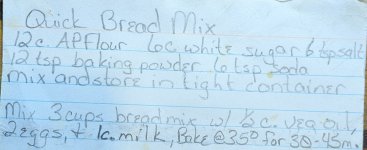 Quick Bread Mix
12c. AP Flour 6c. white sugar 6 tsp salt
12 tsp baking powder 6 tsp soda
mix and store in tight container
Mix 3 cups bread mix w/ ½ c. veg oil,
2 eggs, + 1c. milk, Bake @ 350 for 30-45m.